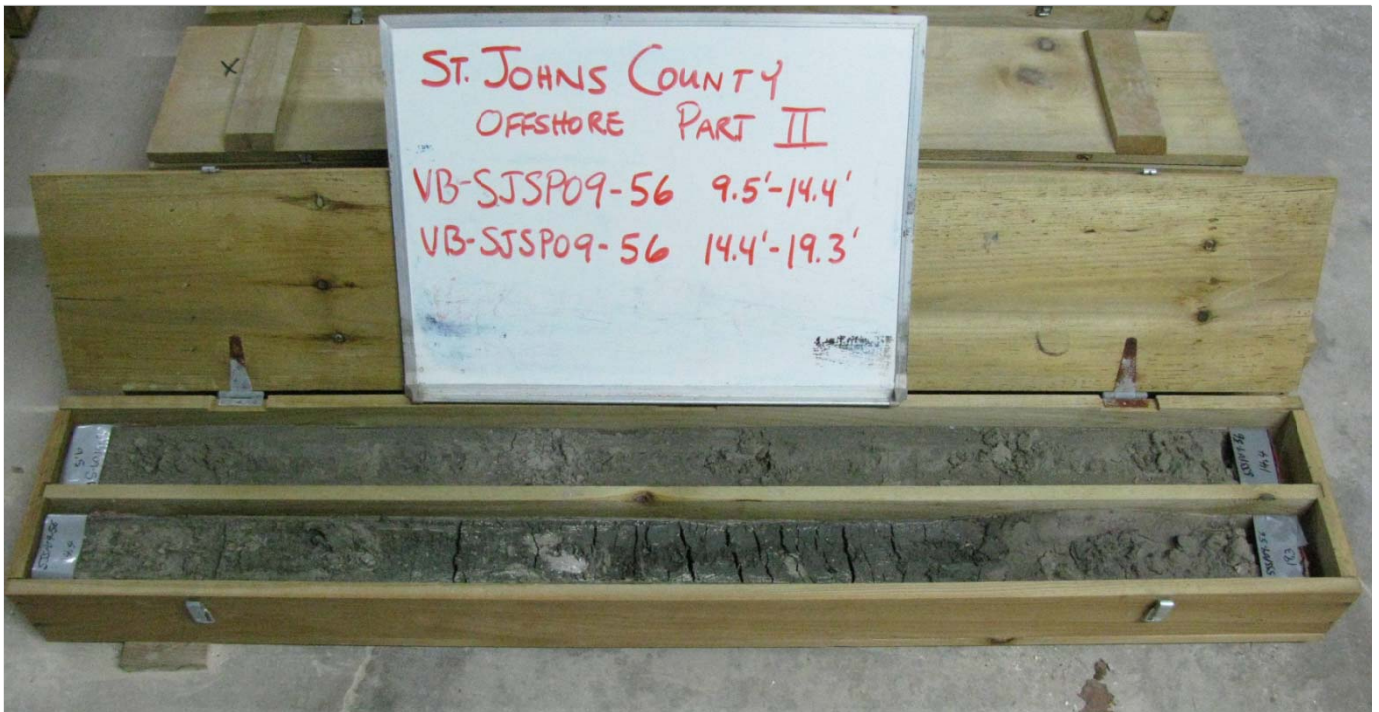 X
ST. JOHNS COUNTY
OFFSHORE PART II
VB-SJSP09-56 9.5'-14.4'
VB-SJSP09-56 14.4'-19.3'
9.5
14.4
19.3